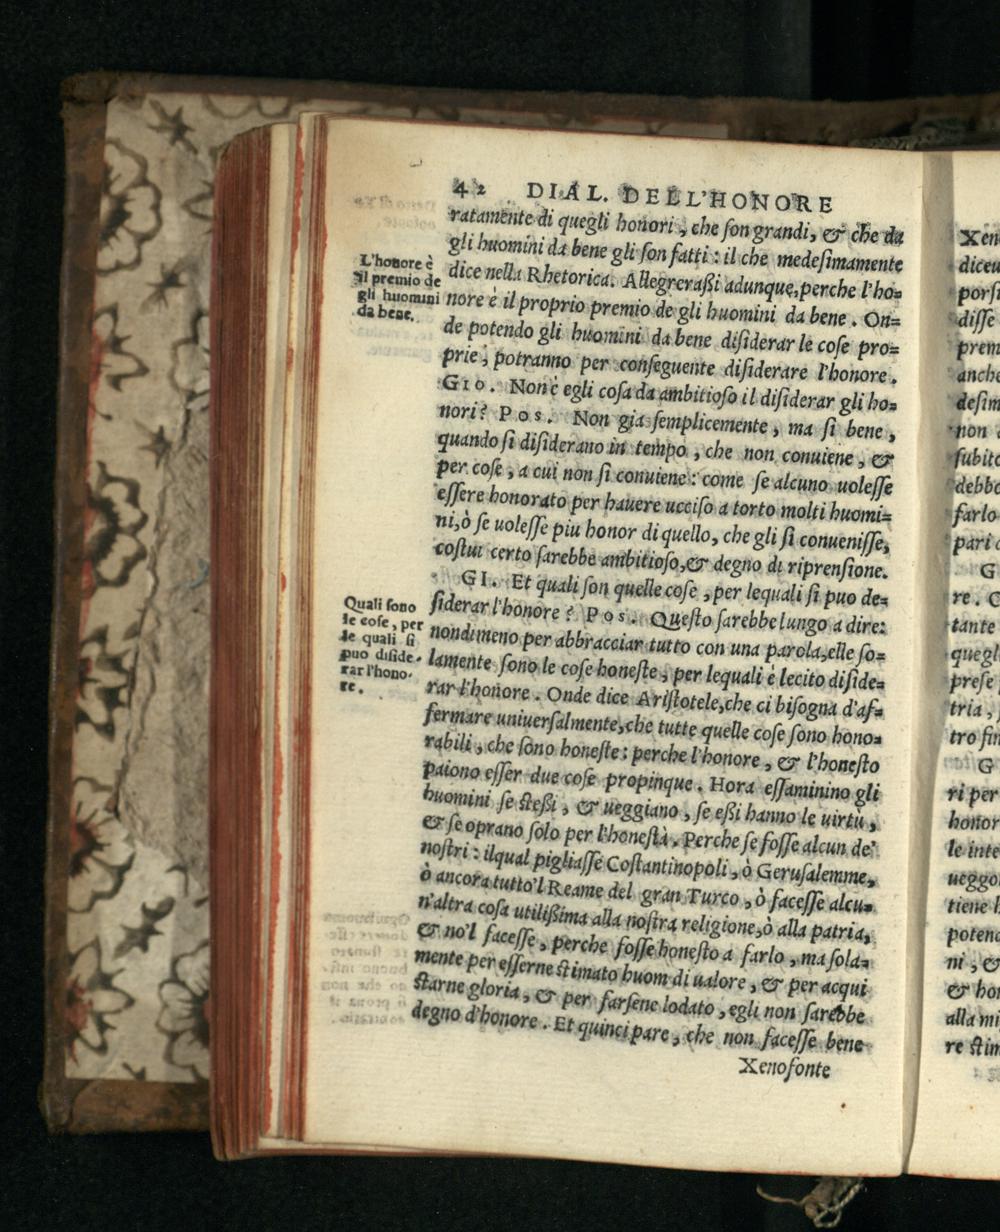 42 DIAL. DELL'HONORE
ratamente di quegli honori, che son grandi, & che da
gli huomini da bene gli son fatti: il che medesimamente
dice nella Rhetorica. Allegrerassi adunque, perche l'ho=
nore è il proprio premio de gli huomini da bene. On=
de potendo gli huomini da bene disiderar le cose pro=
prie, potranno per conseguente disiderare l'honore.
GIO. Non è egli cosa da ambitioso il disiderar gli ho=
nori? POS. Non gia semplicemente, ma si bene,
quando si disiderano in tempo, che non conuiene, &
per cose, a cui non si conuiene: come se alcuno uolesse
essere honorato per hauere ucciso a torto molti huomi=
ni, ò se uolesse piu honor di quello, che gli si conuenisse,
costui certo sarebbe ambitioso, & degno di riprensione.
GI. Et quali son quelle cose, per lequali si puo de=
siderar l'honore? POS. Questo sarebbe lungo a dire:
nondimeno per abbracciar tutto con una parola, elle so=
lamente sono le cose honeste, per lequali è lecito diside=
rar l'honore. Onde dice Aristotele, che ci bisogna d'af=
fermare uniuersalmente, che tutte quelle cose sono hono=
rabili, che sono honeste: perche l'honore, & l'honesto
paiono esser due cose propinque. Hora essaminino gli
huomini se stessi, & ueggiano, se essi hanno le uirtù,
& se oprano solo per l'honestà. Perche se fosse alcun de'
nostri: ilqual pigliasse Costantinopoli, ò Gerusalemme,
ò ancora tutto'l Reame del gran Turco, ò facesse alcu=
n'altra cosa utilissima alla nostra religione, ò alla patria,
& no'l facesse, perche fosse honesto a farlo, ma sola=
mente per esserne stimato huom di ualore, & per acqui
starne gloria, & per farsene lodato, egli non sarebbe
degno d'honore. Et quinci pare, che non facesse bene
Xenofonte
L'honore è
il premio de
gli huomini
da bene.
Quali sono
le cose, per
le quali si
puo diside-
rar l'hono-
re.
Xen
diceu
porsi
disse
prem
anche
desim
non
subito
debbo
farlo
pari
G
re. C
tante
quegl
prese
tria,
tro fin
G
ri per
honor
le inte
ueggo
tiene
potenz
ni, &
& hon
alla mi
re stim